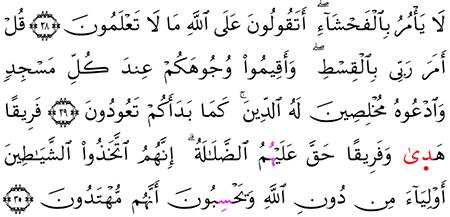 لَا يَأْمُرُ بِٱلْفَحْشَآءِۖ أَتَقُولُونَ عَلَى ٱللَّهِ مَا لَا تَعْلَمُونَ ٢٨ قُلْ
أَمَرَ رَبِّى بِٱلْقِسْطِۖ وَأَقِيمُوا۟ وُجُوهَكُمْ عِندَ كُلِّ مَسْجِدٍ
وَٱدْعُوهُ مُخْلِصِينَ لَهُ ٱلدِّينَۚ كَمَا بَدَأَكُمْ تَعُودُونَ ٢٩ فَرِيقًا
هَدىٰ وَفَرِيقًا حَقَّ عَلَيْهُمُ ٱلضَّلَٰلَةُۗ إِنَّهُمُ ٱتَّخَذُوا۟ ٱلشَّيَٰطِينَ
أَوْلِيَآءَ مِن دُونِ ٱللَّهِ وَيَحْسِبُونَ أَنَّهُم مُّهْتَدُونَ ٣٠